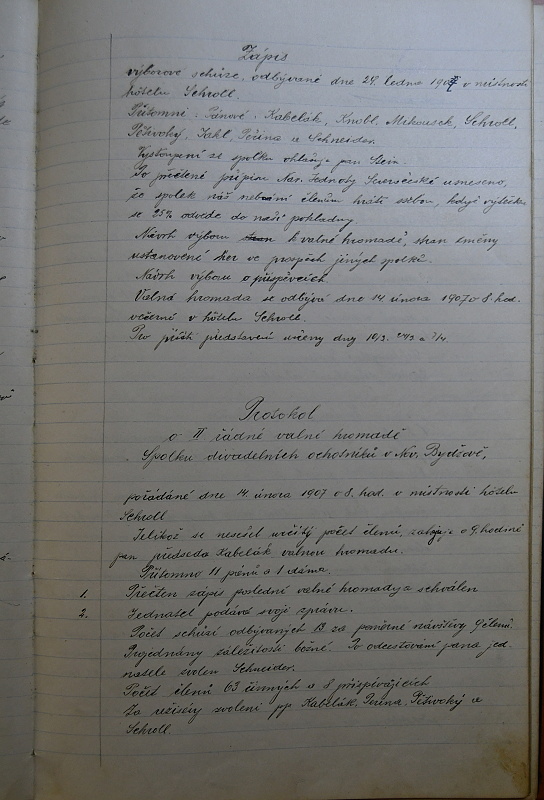 Zápis
výborové schůze, odbývané dne 24. ledna 1907 v místnosti
hôtelu Schroll.
Přítomni: Pánové: Kabelák, Knobl, Mikousek, Schroll,
Pětivoký, Jakl, Peřina a Schneider.
Vystoupení ze spolku ohlašuje pan Stein.
Po přečtení přípisu Nár. Jednoty Severočeské usneseno,
že spolek náš nebrání členům hráti sebou, když výtěžek
se 25% odvede do naší pokladny.
Návrh výboru k valné hromadě, stran změny
ustanovení her ve prospěch jiných spolků.
Návrh výboru o příspěvcích.
Valná hromada se odbývá dne 14. února 1907 o 8 hod.
večerní v hôtelu Schroll.
Pro příští představení určeny dny 10/3. 24/3 a 7/4.
Protokol
o II řádné valné hromadě
Spolku divadelních ochotníků v Nov. Bydžově,
pořádáné dne 14. února 1907 o 8. hod. v místnosti hôtelu
Schroll
Jelikož se nesešel určitý počet členů, zahajuje o 9. hodině
pan předseda Kabelák valnou hromadu.
Přítomno 11 pánů a 1 dáma.
1. Přečten zápis poslední valné hromady a schválen
2. Jednatel podává svoji zprávu.
Počet schůzí odbývaných 13 za poměrné návštěvy 9 členů.
Projednány záležitosti běžné. Po odcestování pana jed-
natele zvolen Schneider.
Počet členů 63 činných a 8 přispívajících
Za režiséry zvoleni pp. Kabelák, Peřina, Pětivoký a
Schroll.